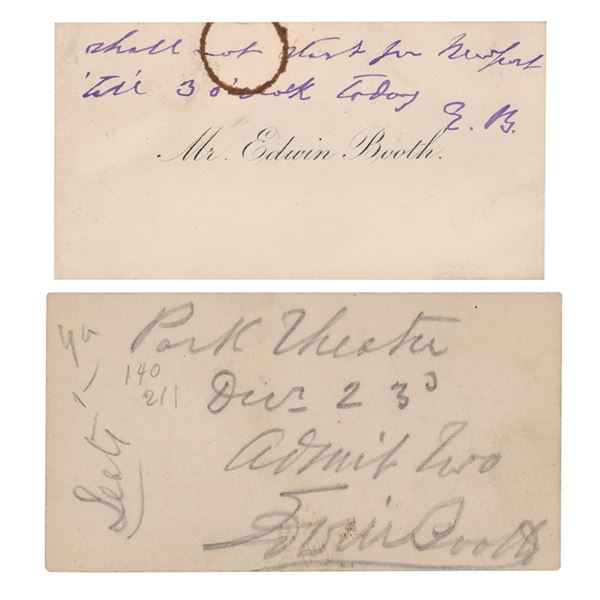 shall not start for Newport
'till 3 o'clock today
E. B.
Mr. Edwin Booth.
Park Theater
140
211
Decr 23d
Admit Two
Edwin Booth
Seats